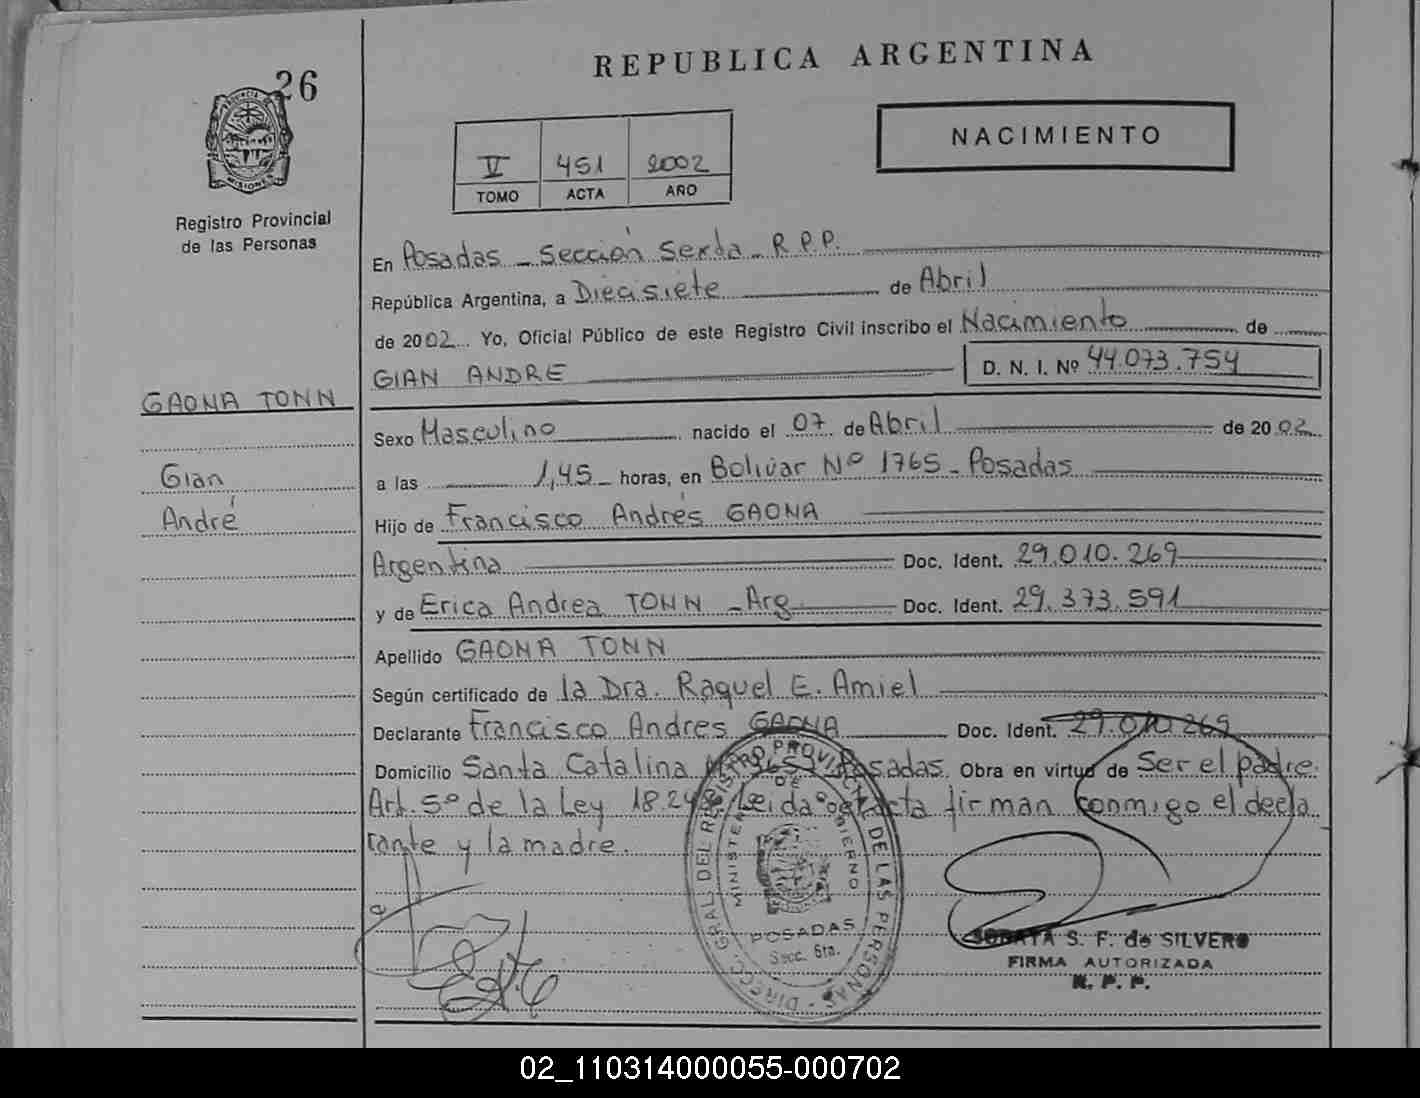 REPUBLICA ARGENTINA
26
PROVINCIA DE
MISIONES
Registro Provincial
de las Personas
V 451 2002
TOMO ACTA AÑO
NACIMIENTO
En Posadas - Sección Sexta - R.P.P.
República Argentina, a Diecisiete de Abril
de 2002 Yo, Oficial Público de este Registro Civil inscribo el Nacimiento de
GIAN ANDRE D. N. I. Nº 44.073.754
GAONA TONN
Gian
André
Sexo Masculino nacido el 07 de Abril de 2002
a las 1,45 horas, en Bolivar Nº 1765 - Posadas
Hijo de Francisco Andrés GAONA
Argentina Doc. Ident. 29.010.269
y de Erica Andrea TONN - Arg. Doc. Ident. 29.373.591
Apellido GAONA TONN
Según certificado de la Dra. Raquel E. Amiel
Declarante Francisco Andres GAONA Doc. Ident. 29.010.269
Domicilio Santa Catalina Posadas. Obra en virtud de Ser el padre.
Art. 5º de la Ley Leida el acta firman conmigo el decla
rante y la madre.
DIRECC. GRAL. DEL REGISTRO PROVINCIAL DE LAS PERSONAS
MINISTERIO DE GOBIERNO
POSADAS
Secc. 6ta.
S. F. de SILVERO
FIRMA AUTORIZADA
R. P. P.
02_110314000055-000702